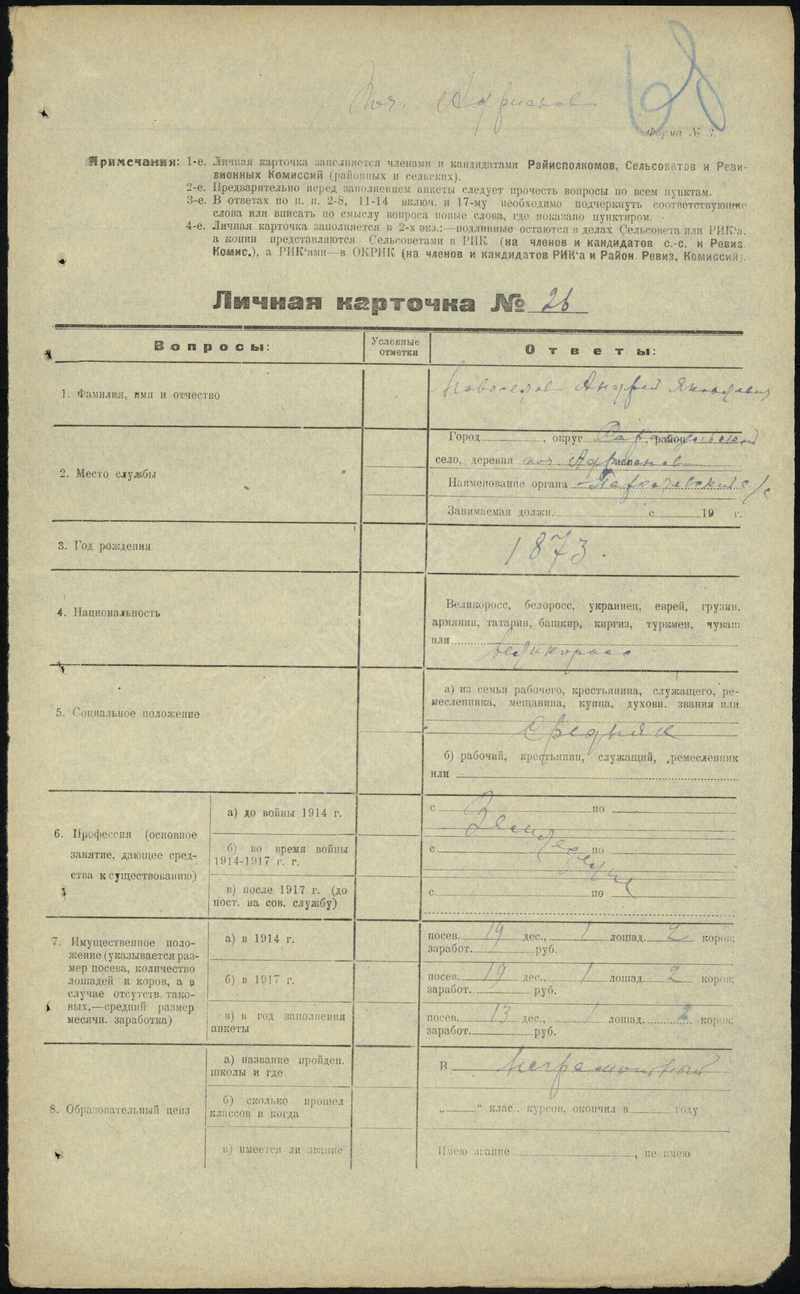 Поч. Адрианов
68
Форма № 3.
Примечания: 1-е. Личная карточка заполняется членами и кандидатами Райисполкомов, Сельсоветов и Реви-
зионных Комиссий (районных и сельских).
2-е. Предварительно перед заполнением анкеты следует прочесть вопросы по всем пунктам.
3-е. В ответах по п. п. 2-8, 11-14 включ. и 17-му необходимо подчеркнуть соответствующие
слова или вписать по смыслу вопроса новые слова, где показано пунктиром.
4-е. Личная карточка заполняется в 2-х экз.:—подлинные остаются в делах Сельсовета или РИК'а,
а копии представляются Сельсоветами в РИК (на членов и кандидатов с.-с. и Ревиз.
Комис.), а РИК'ами—в ОКРИК (на членов и кандидатов РИК'а и Район. Ревиз. Комиссий).
Личная карточка № 26
Вопросы: Условные отметки Ответы:
1. Фамилия, имя и отчество Андрей Яковлевич
2. Место службы
Город , округ , район
село, деревня поч. Адрианов
Наименование органа с/с
Занимаемая должн. с 19 г.
3. Год рождения 1873.
4. Национальность
Великоросс, белоросс, украинец, еврей, грузин,
армянин, татарин, башкир, киргиз, туркмен, чуваш
или великоросс
5. Социальное положение
а) из семьи рабочего, крестьянина, служащего, ре-
месленника, мещанина, купца, духовн. звания или
Средняк
б) рабочий, крестьянин, служащий, ремесленник
или
6. Профессия (основное
занятие, дающее сред-
ства к существованию)
а) до войны 1914 г. с по
б) во время войны
1914-1917 г. г. с по
в) после 1917 г. (до
пост. на сов. службу) с по
Земледелие
7. Имущественное поло-
жение (указывается раз-
мер посева, количество
лошадей и коров, а в
случае отсутств. тако-
вых,—средний размер
месячн. заработка)
а) в 1914 г. посев. 19 дес., 1 лошад. 2 коров;
заработ. руб.
б) в 1917 г. посев. 19 дес., 1 лошад. 2 коров;
заработ. руб.
в) в год заполнения
анкеты посев. 13 дес., 1 лошад. 2 коров;
заработ. руб.
8. Образовательный ценз
а) название пройден.
школы и где В Неграмотный
б) сколько прошел
классов и когда „ “ клас., курсов, окончил в году
в) имеется ли звание Имею звание , не имею